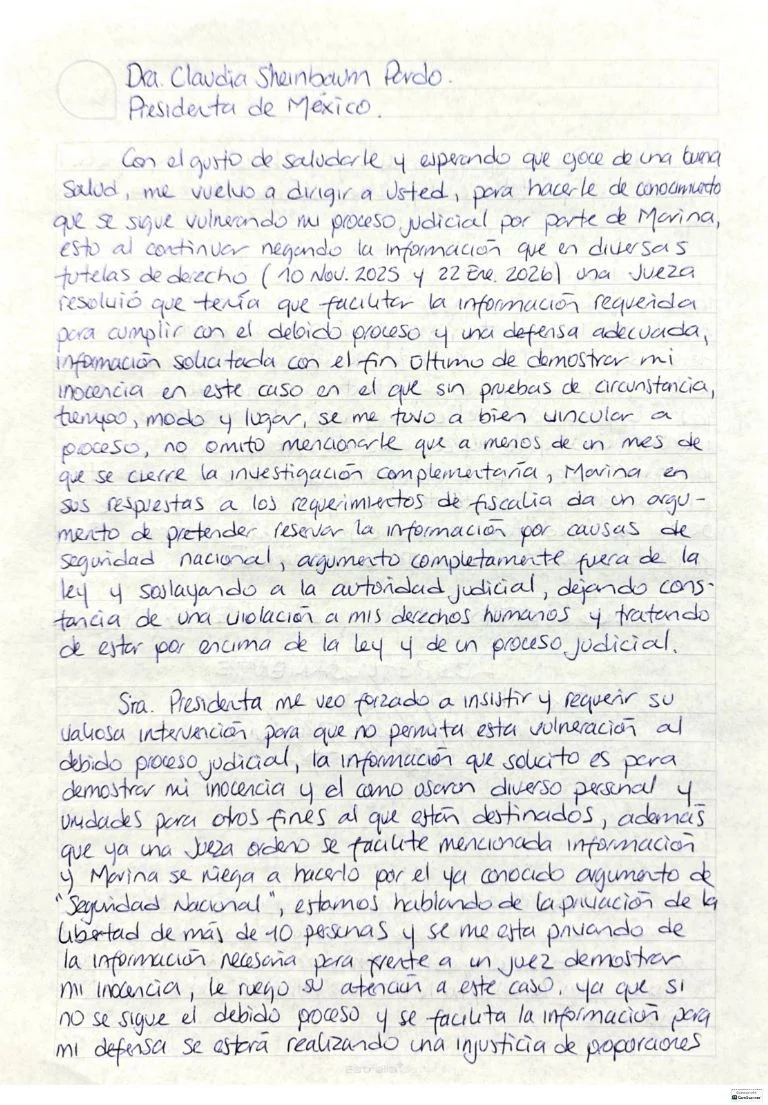 Dra. Claudia Sheinbaum Pardo.
Presidenta de México.
Con el gusto de saludarle y esperando que goce de una buena
salud, me vuelvo a dirigir a Usted, para hacerle de conocimiento
que se sigue vulnerando mi proceso judicial por parte de Marina,
esto al continuar negando la información que en diversas
tutelas de derecho (10 Nov. 2025 y 22 Ene. 2026) una Jueza
resolvió que tenía que facilitar la información requerida
para cumplir con el debido proceso y una defensa adecuada,
información solicitada con el fin último de demostrar mi
inocencia en este caso en el que sin pruebas de circunstancia,
tiempo, modo y lugar, se me tuvo a bien vincular a
proceso, no omito mencionarle que a menos de un mes de
que se cierre la investigación complementaria, Marina en
sus respuestas a los requerimientos de fiscalia da un argu-
mento de pretender reservar la información por causas de
seguridad nacional, argumento completamente fuera de la
ley y soslayando a la autoridad judicial, dejando cons-
tancia de una violación a mis derechos humanos y tratando
de estar por encima de la ley y de un proceso judicial.
Sra. Presidenta me veo forzado a insistir y requerir su
valiosa intervención para que no permita esta vulneración al
debido proceso judicial, la información que solicito es para
demostrar mi inocencia y el como usaron diverso personal y
unidades para otros fines al que están destinados, además
que ya una Jueza ordeno se facilite mencionada información
y Marina se niega a hacerlo por el ya conocido argumento de
"Seguridad Nacional", estamos hablando de la privación de la
libertad de más de 10 personas y se me esta privando de
la información necesaria para frente a un juez demostrar
mi inocencia, le ruego su atención a este caso, ya que si
no se sigue el debido proceso y se facilita la información para
mi defensa se estará realizando una injusticia de proporciones
Estrella
CamScanner